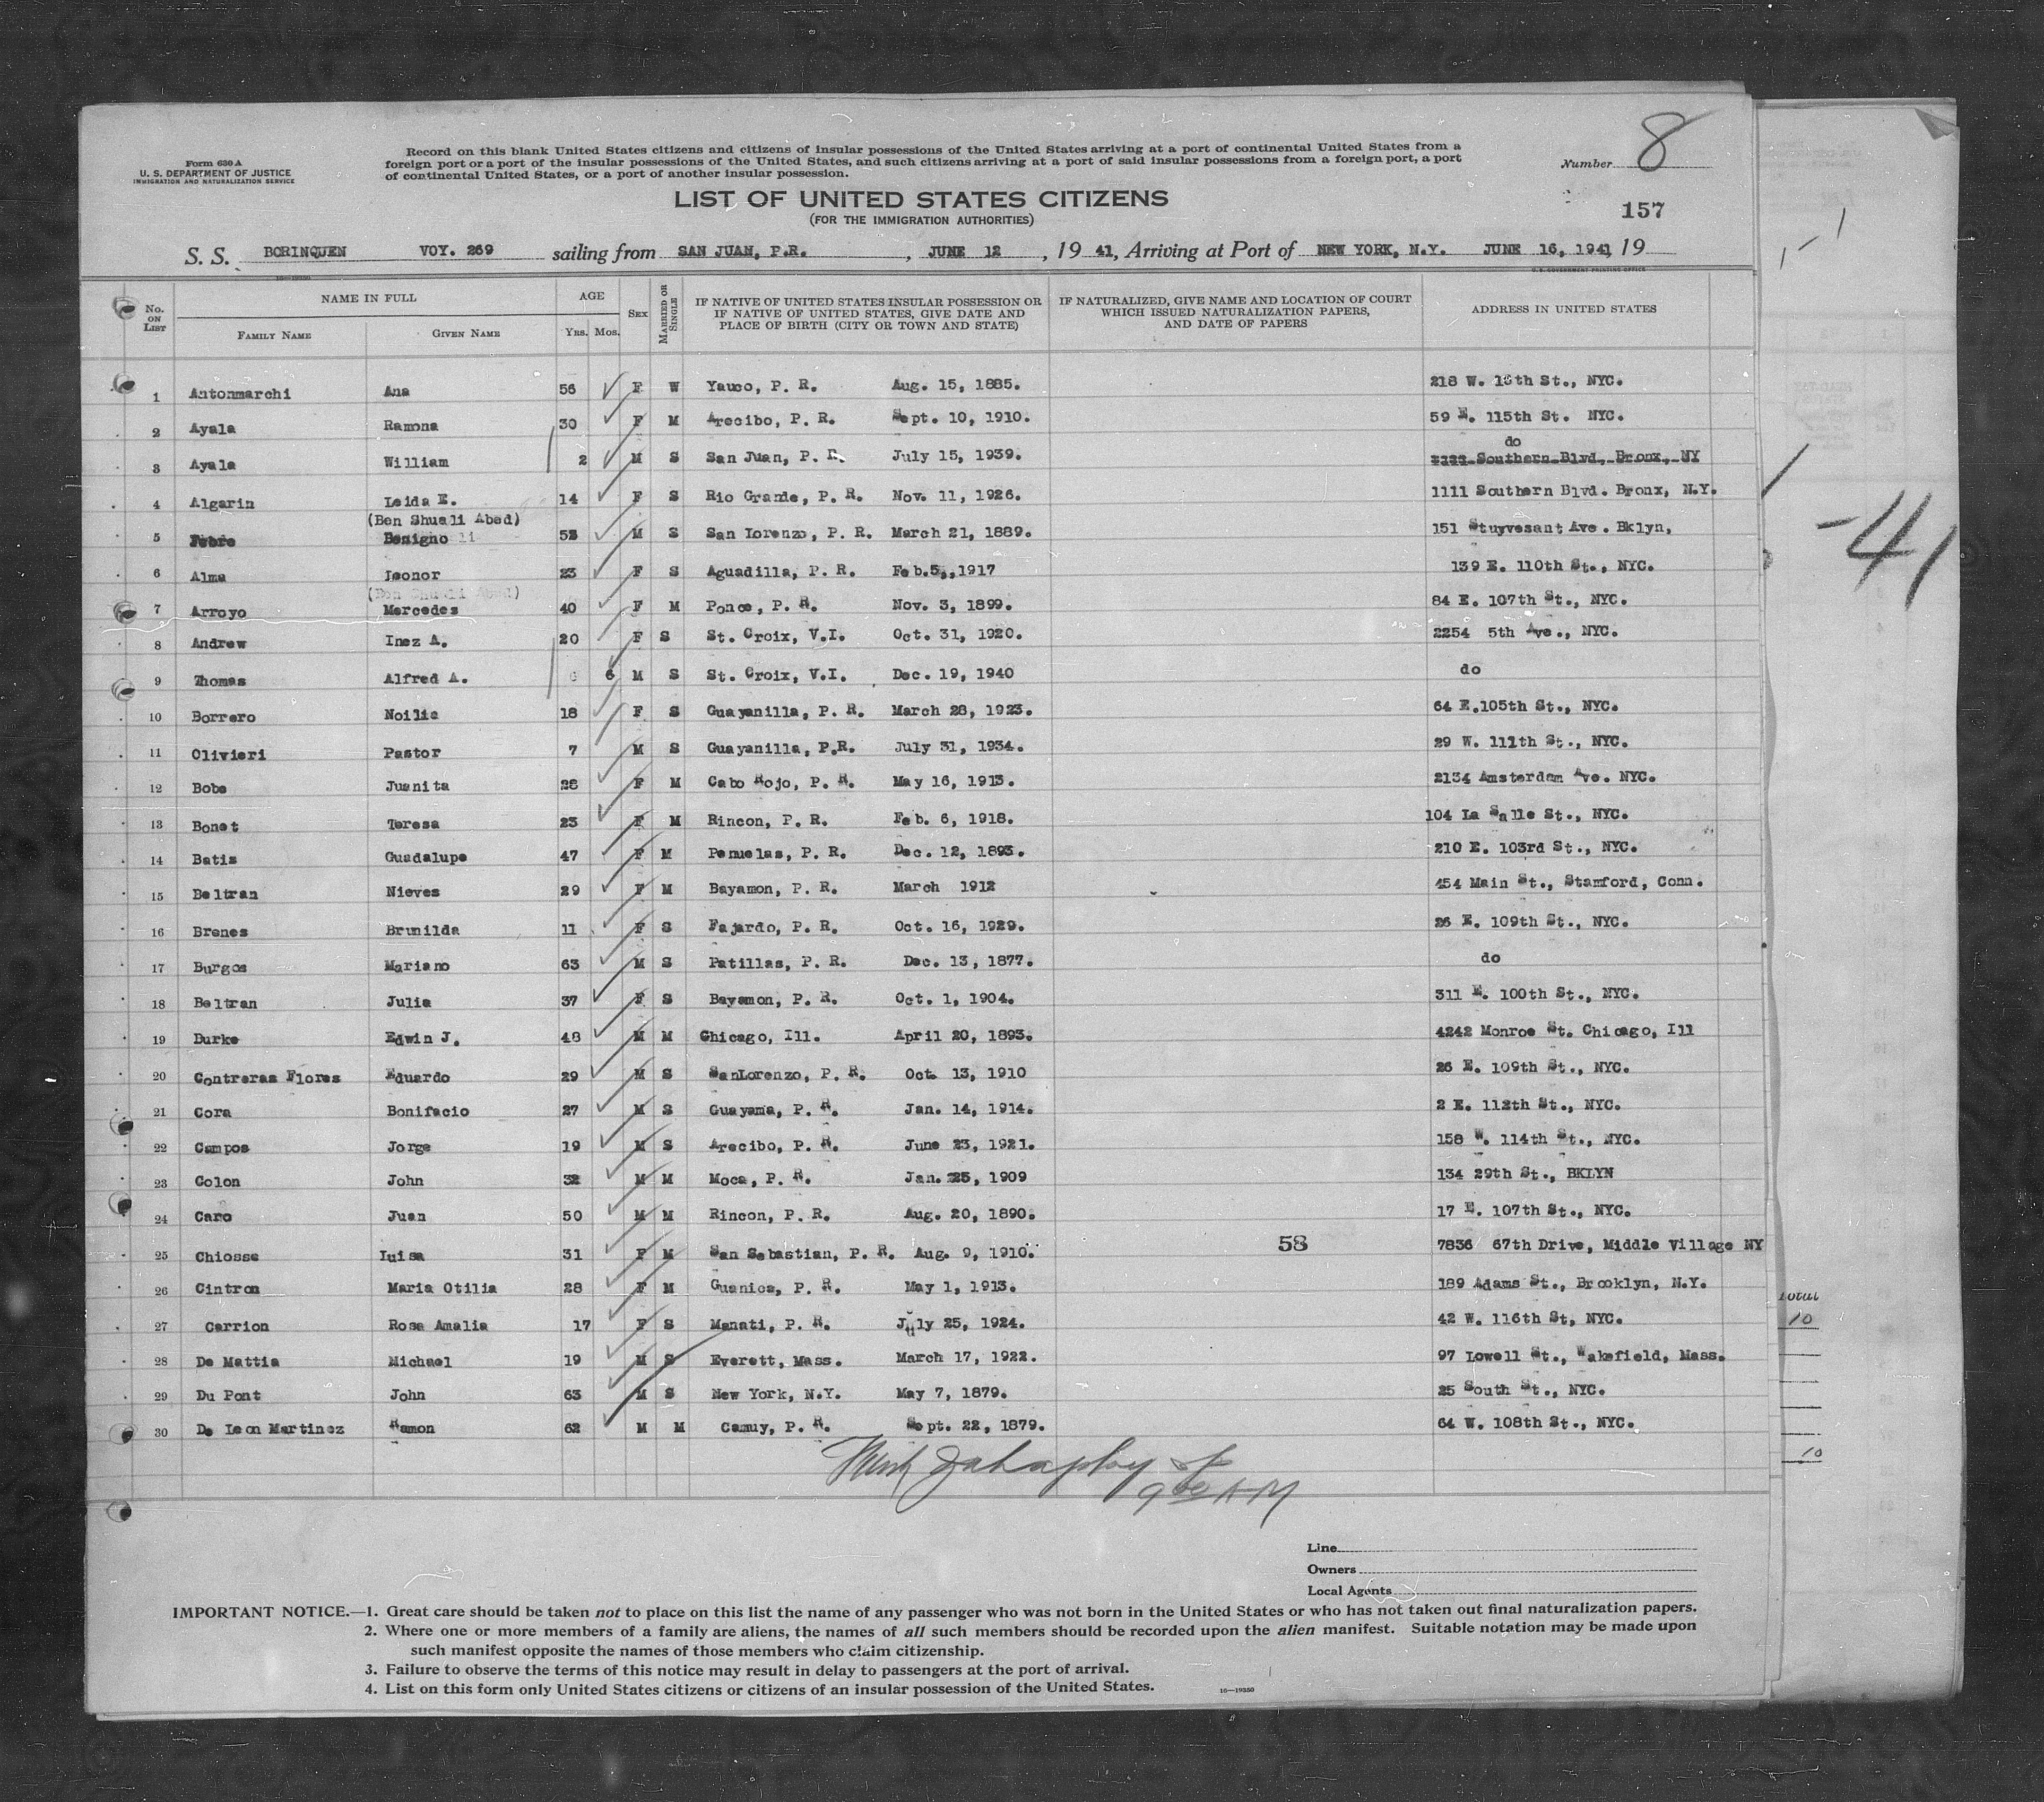 Form 630 A
U. S. DEPARTMENT OF JUSTICE
IMMIGRATION AND NATURALIZATION SERVICE
Record on this blank United States citizens and citizens of insular possessions of the United States arriving at a port of continental United States from a
foreign port or a port of the insular possessions of the United States, and such citizens arriving at a port of said insular possessions from a foreign port, a port
of continental United States, or a port of another insular possession.
Number 8
LIST OF UNITED STATES CITIZENS
(FOR THE IMMIGRATION AUTHORITIES)
157
S. S. BORINQUEN VOY. 269 sailing from SAN JUAN, P.R. , JUNE 12 , 19 41, Arriving at Port of NEW YORK, N.Y. JUNE 16, 1941, 19
16—19350 U. S. GOVERNMENT PRINTING OFFICE
No. ON LIST NAME IN FULL FAMILY NAME GIVEN NAME AGE YRS. MOS. SEX MARRIED OR SINGLE
IF NATIVE OF UNITED STATES INSULAR POSSESSION OR IF NATIVE OF UNITED STATES, GIVE DATE AND PLACE OF BIRTH (CITY OR TOWN AND STATE)
IF NATURALIZED, GIVE NAME AND LOCATION OF COURT WHICH ISSUED NATURALIZATION PAPERS, AND DATE OF PAPERS
ADDRESS IN UNITED STATES
1 Antonmarchi Ana 56 F W Yauco, P. R. Aug. 15, 1885. 218 W. 16th St., NYC.
2 Ayala Ramona 30 F M Arecibo, P. R. Sept. 10, 1910. 59 E. 115th St. NYC.
do
3 Ayala William 2 M S San Juan, P. R. July 15, 1939. Southern Blvd, Bronx, NY
4 Algarin Leida E. 14 F S Rio Grande, P. R. Nov. 11, 1926. 1111 Southern Blvd. Bronx, N.Y.
(Ben Shuali Abed)
5 Benigno 52 M S San Lorenzo, P. R. March 21, 1889. 151 Stuyvesant Ave. Bklyn,
6 Alma Leonor 23 F S Aguadilla, P. R. Feb.5,,1917 139 E. 110th St., NYC.
(Ben Shuali Abed)
7 Arroyo Mercedes 40 F M Ponce, P. R. Nov. 3, 1899. 84 E. 107th St., NYC.
8 Andrew Inez A. 20 F S St. Croix, V.I. Oct. 31, 1920. 2254 5th Ave., NYC.
9 Thomas Alfred A. 6 M S St. Croix, V.I. Dec. 19, 1940 do
10 Borrero Noilia 18 F S Guayanilla, P. R. March 28, 1923. 64 E.105th St., NYC.
11 Olivieri Pastor 7 M S Guayanilla, P.R. July 31, 1934. 29 W. 111th St., NYC.
12 Bobe Juanita 28 F M Cabo Rojo, P. R. May 16, 1913. 2134 Amsterdam Ave. NYC.
13 Bonet Teresa 23 F M Rincon, P. R. Feb. 6, 1918. 104 La Salle St., NYC.
14 Batis Guadalupe 47 F M Penuelas, P. R. Dec. 12, 1893. 210 E. 103rd St., NYC.
15 Beltran Nieves 29 F M Bayamon, P. R. March 1912 454 Main St., Stamford, Conn.
16 Brenes Brunilda 11 F S Fajardo, P. R. Oct. 16, 1929. 26 E. 109th St., NYC.
17 Burgos Mariano 63 M S Patillas, P. R. Dec. 13, 1877. do
18 Beltran Julia 37 F S Bayamon, P. R. Oct. 1, 1904. 311 E. 100th St., NYC.
19 Burke Edwin J. 48 M M Chicago, Ill. April 20, 1893. 4242 Monroe St. Chicago, Ill
20 Contreras Flores Eduardo 29 M S SanLorenzo, P. R. Oct. 13, 1910 26 E. 109th St., NYC.
21 Cora Bonifacio 27 M S Guayama, P. R. Jan. 14, 1914. 2 E. 112th St., NYC.
22 Campos Jorge 19 M S Arecibo, P. R. June 23, 1921. 158 W. 114th St., NYC.
23 Colon John 32 M M Moca, P. R. Jan. 25, 1909 134 29th St., BKLYN
24 Caro Juan 50 M M Rincon, P. R. Aug. 20, 1890. 17 E. 107th St., NYC.
25 Chiosse Luisa 31 F M San Sebastian, P. R. Aug. 9, 1910. 58 7836 67th Drive, Middle Village NY
26 Cintron Maria Otilia 28 F M Guanica, P. R. May 1, 1913. 189 Adams St., Brooklyn, N.Y.
27 Carrion Rosa Amalia 17 F S Manati, P. R. July 25, 1924. 42 W. 116th St, NYC.
28 De Mattia Michael 19 M S Everett, Mass. March 17, 1922. 97 Lowell St., Wakefield, Mass.
29 Du Pont John 63 M S New York, N.Y. May 7, 1879. 25 South St., NYC.
30 De Leon Martinez Ramon 62 M M Camuy, P. R. Sept. 22, 1879. 64 W. 108th St., NYC.
9 00 AM
Line
Owners
Local Agents
IMPORTANT NOTICE.—1. Great care should be taken not to place on this list the name of any passenger who was not born in the United States or who has not taken out final naturalization papers.
2. Where one or more members of a family are aliens, the names of all such members should be recorded upon the alien manifest. Suitable notation may be made upon
such manifest opposite the names of those members who claim citizenship.
3. Failure to observe the terms of this notice may result in delay to passengers at the port of arrival.
4. List on this form only United States citizens or citizens of an insular possession of the United States.
16—19350
-41
Total
10
10